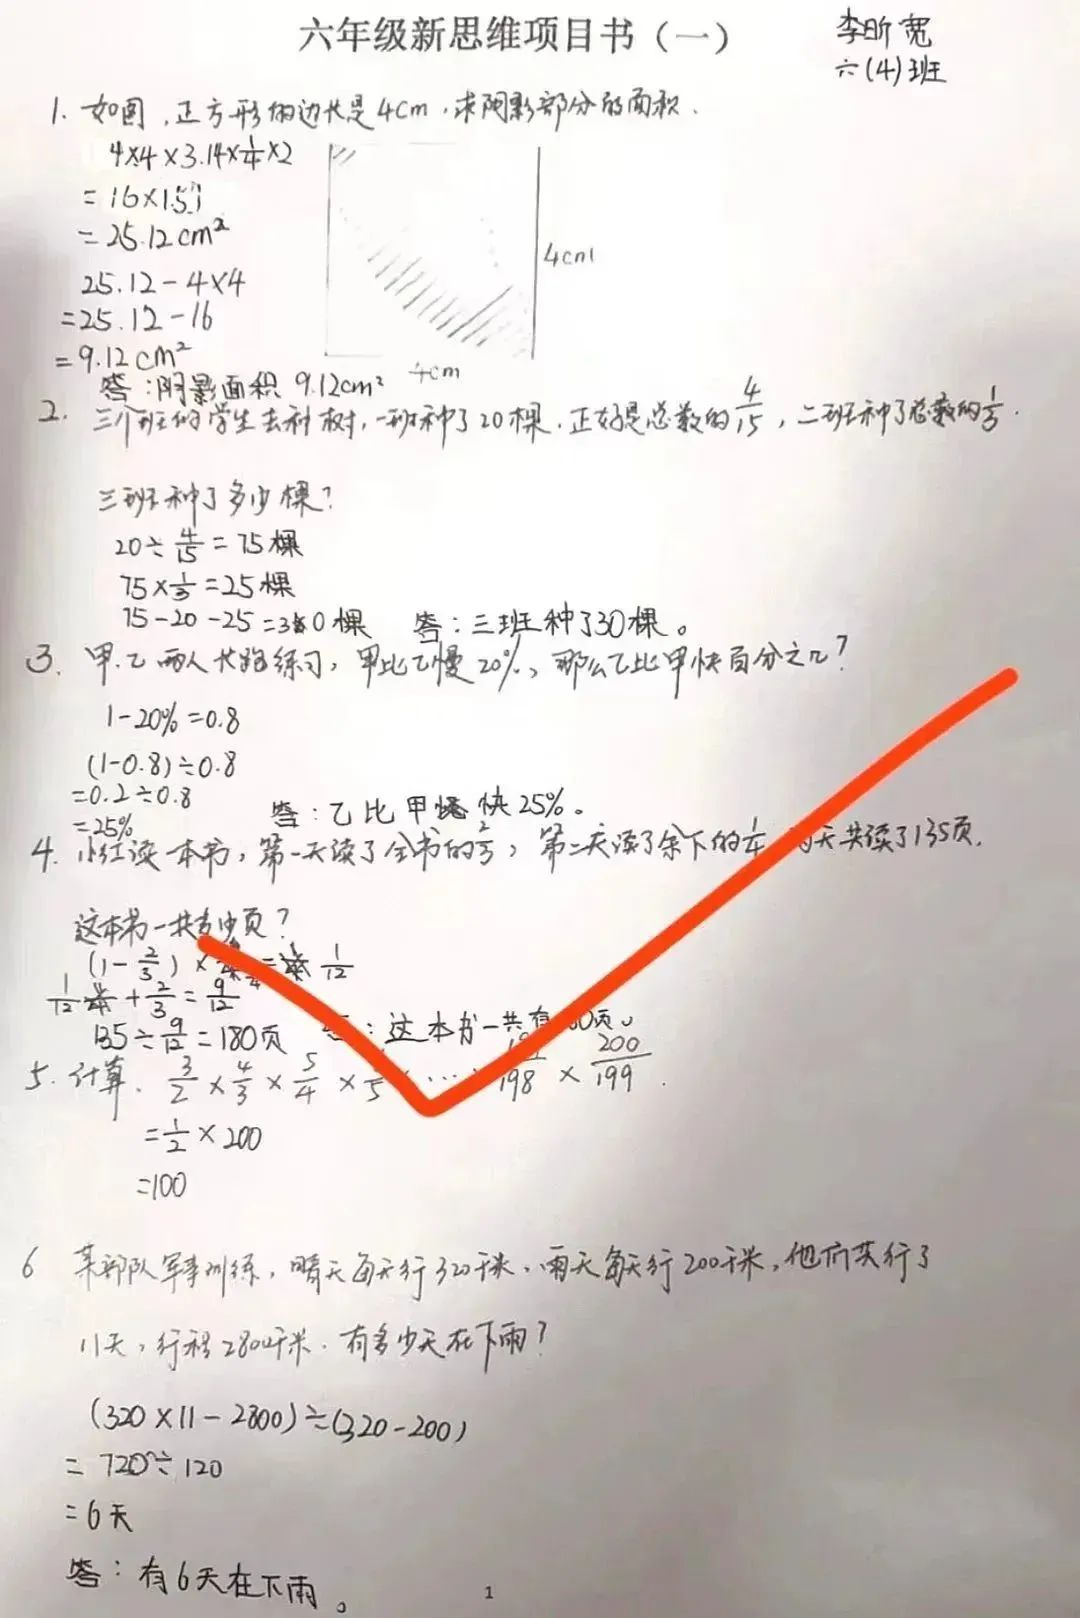 六年级新思维项目书（一）
李昕宽
六(4)班
1. 如图,正方形的边长是4cm,求阴影部分的面积.
4×4×3.14×1/4×2
=16×1.57
=25.12cm²
25.12-4×4
=25.12-16
=9.12cm²
4cm
4cm
答:阴影面积 9.12cm²
2. 三个班的学生去种树,一班种了20棵,正好是总数的4/15,二班种了总数的1/3.
三班种了多少棵?
20÷4/15=75棵
75×1/3=25棵
75-20-25=30棵 答:三班种了30棵。
3. 甲.乙两人长跑练习,甲比乙慢20%,那么乙比甲快百分之几?
1-20%=0.8
(1-0.8)÷0.8
=0.2÷0.8
=25%
答:乙比甲快25%。
4. 小红读一本书,第一天读了全书的2/3,第二天读了余下的1/4,两天共读了135页.
这本书一共多少页?
(1-2/3)× = 1/12
1/12+2/3=9/12
135÷9/12=180页 :这本书一共有 0页。
5. 计算. 3/2×4/3×5/4× … 198×200/199.
=1/2×200
=100
6 某部队军事训练,晴天每天行320千米,雨天每天行200千米,他们共行了
11天,行程2800千米.有多少天在下雨?
(320×11-2800)÷(320-200)
=720÷120
=6天
答:有6天在下雨。
1